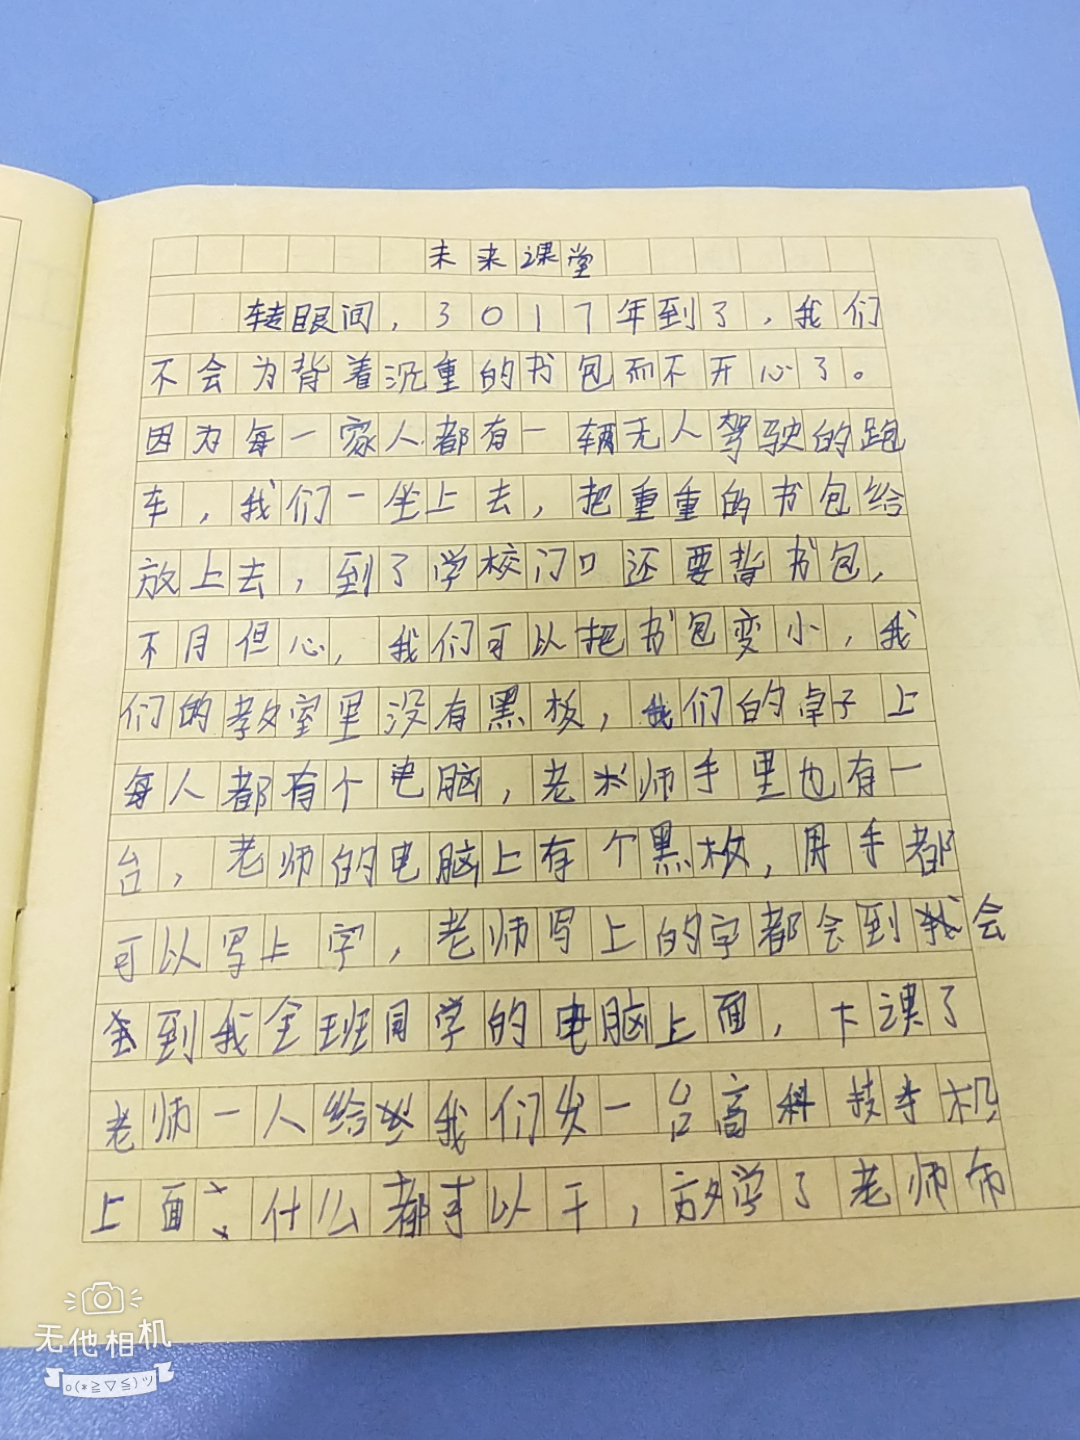 未来课堂
转眼间，3017年到了，我们
不会为背着沉重的书包而不开心了。
因为每一家人都有一辆无人驾驶的跑
车，我们一坐上去，把重重的书包给
放上去，到了学校门口还要背书包，
不用但心，我们可以把书包变小，我
们的教室里没有黑板，我们的桌子上
每人都有个电脑，老师手里也有一
台，老师的电脑上有个黑板，用手都
可以写上字，老师写上的字都会到会
到我全班同学的电脑上面，下课了
老师一人给我们发一台高科技手机
上面什么都可以干，放学了老师布
无他相机
o(*≧▽≦)ツ